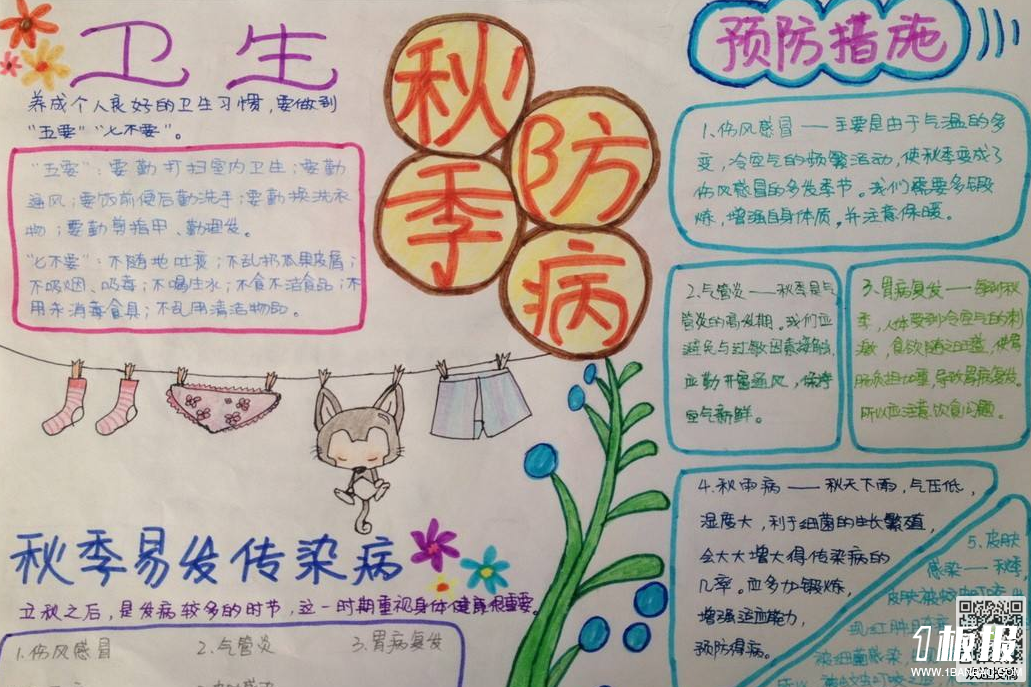 卫生
养成个人良好的卫生习惯，要做到
“五要”“七不要”。
“五要”：要勤打扫室内卫生；要勤
通风；要饭前便后勤洗手；要勤换洗衣
物；要勤剪指甲、勤理发。
“七不要”：不随地吐痰；不乱扔瓜果皮屑；
不吸烟、吸毒；不喝生水；不食不洁食品；不
用未消毒食具；不乱用清洁物品。
秋季
防病
预防措施
1.伤风感冒——主要是由于气温的多
变，冷空气的频繁活动，使秋季变成了
伤风感冒的多发季节。我们需要多锻
炼，增强自身体质。并注意保暖。
2.气管炎——秋季是气
管炎的高发期。我们应
避免与过敏因素接触，
应勤开窗通风，保持
空气新鲜。
3.胃病复发——每到秋
季，人体受到冷空气的刺
激，食欲随之旺盛，使胃
肠负担加重，导致胃病复发。
所以应注意饮食问题。
4.秋雨病——秋天下雨，气压低，
湿度大，利于细菌的生长繁殖，
会大大增大得传染病的
几率。应多加锻炼，
增强适应能力，
预防得病。
5.皮肤
感染——秋季，
皮肤被蚊虫叮咬
现红肿
秋季易发传染病
立秋之后，是发病较多的时节，这一时期重视身体健康很重要。
1.伤风感冒 2.气管炎 3.胃病复发
1板报
WWW.1BANBAO.COM
欢迎投稿